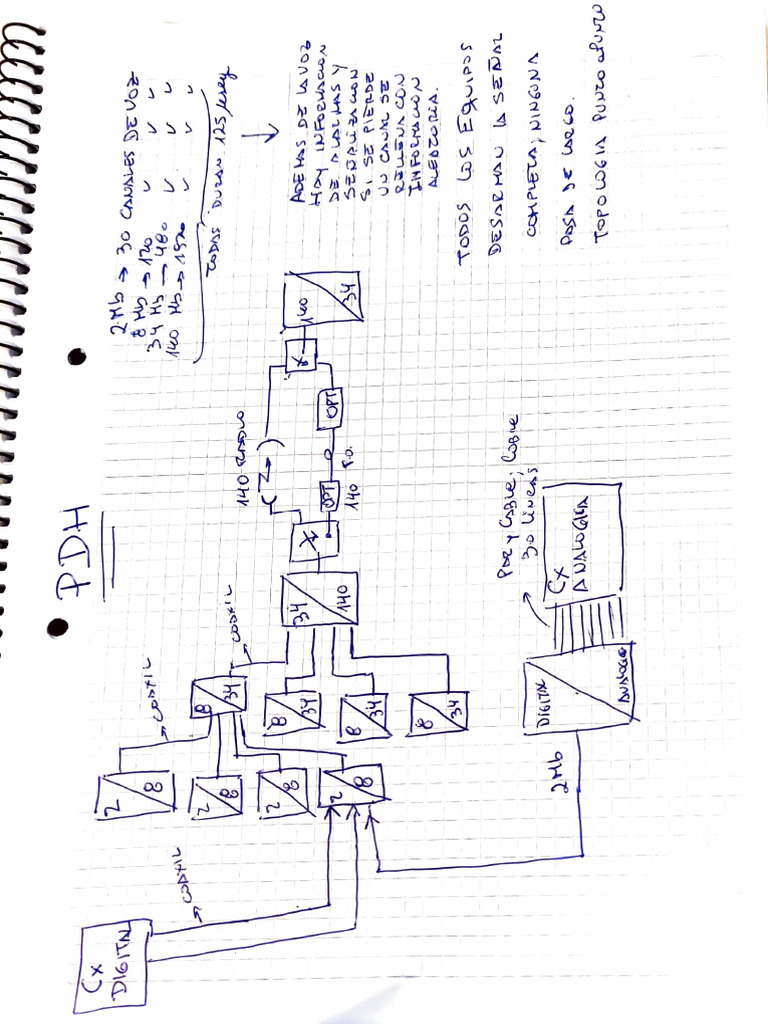 PDH
2 Mb → 30 CANALES DE VOZ
8 Mb → 120 " " "
34 Mb → 480 " " "
140 Mb → 1920 " " "
TODAS DURAN 125 μseg
ADEMAS DE LA VOZ
HAY INFORMACION
DE ALARMAS Y
SEÑALIZACION
SI SE PIERDE
UN CANAL SE
RELLENA CON
INFORMACION
ALEATORIA.
TODOS LOS EQUIPOS
DESARMAN LA SEÑAL
COMPLETA, NINGUNA
PASA DE LARGO.
TOPOLOGIA PUNTO A PUNTO
CX
DIGITAL
→ COAXIL
2 / 8
2 / 8
2 / 8
2 / 8
→ COAXIL
8 / 34
8 / 34
8 / 34
8 / 34
→ COAXIL
34 / 140
X
140 RADIO
OPT
OPT
140 F.O.
X
140 / 34
2Mb
DIGITAL
ANALOGICO
PAR Y CABLE, COBRE
30 LINEAS
CX
ANALOGICA